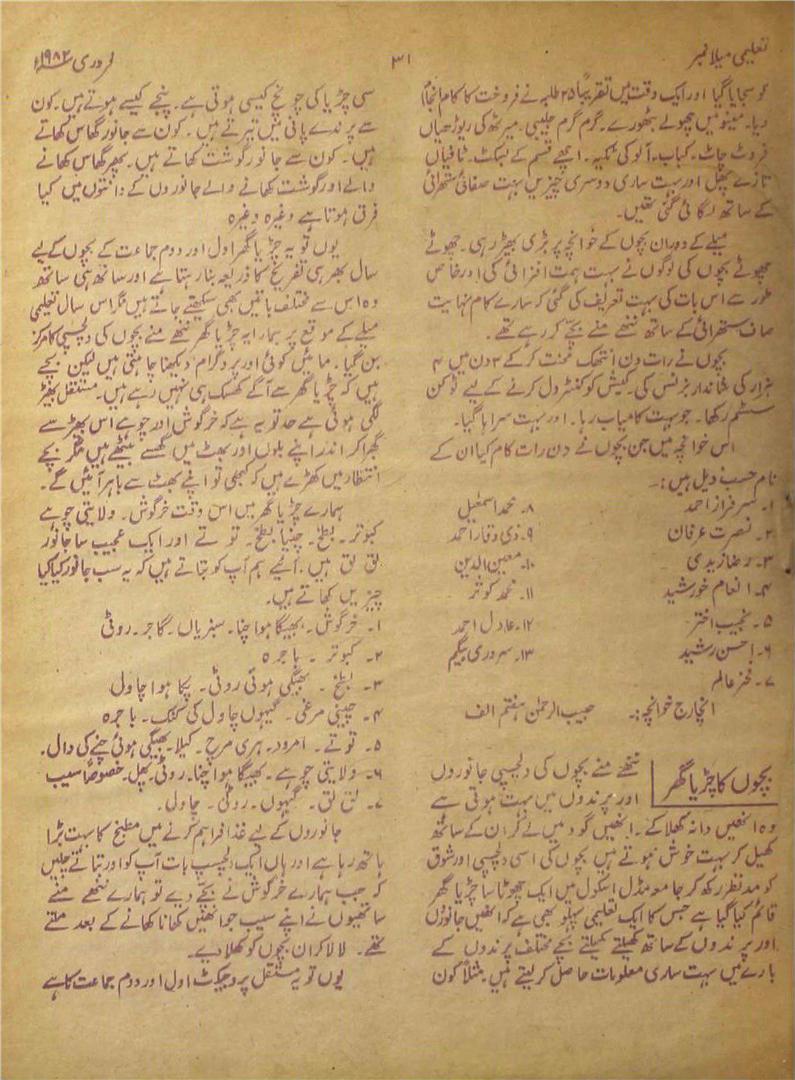 تعلیمی میلا نمبر
۳۱
فروری ۱۹۸۲ء
کو سجایا گیا اور ایک وقت میں تقریباً ۲۵ طلبہ نے فروخت کا کام انجام
دیا۔ مینو میں چھولے بٹھورے۔ گرم گرم جلیبی۔ میرٹھ کی ریوڑھیاں
فروٹ چاٹ۔ کباب۔ آلو کی ٹکیہ۔ اچھے قسم کے بسکٹ۔ ٹافیاں
تازے پھل اور بہت ساری دوسری چیزیں بہت صفائی ستھرائی
کے ساتھ لگائی گئی تھیں۔
میلے کے دوران بچوں کے خوانچہ پر بڑی بھیڑ رہی۔ چھوٹے
چھوٹے بچوں کی لوگوں نے بہت ہمت افزائی کی اور خاص
طور سے اس بات کی بہت تعریف کی گئی کہ سارے کام نہایت
صاف ستھرائی کے ساتھ ننھے منے بچے کر رہے تھے۔
بچوں نے رات دن انتھک محنت کر کے ۳ دن میں ۴
ہزار کی شاندار بزنس کی۔ کیش کو کنٹرول کرنے کے لیے ٹوکن
سسٹم رکھا۔ جو بہت کامیاب رہا۔ اور بہت سراہا گیا۔
اس خوانچہ میں جن بچوں نے دن رات کام کیا ان کے
نام حسب ذیل ہیں:۔
۱۔ سرفراز احمد
۲۔ نصرت عرفان
۳۔ رضا زیدی
۴۔ انعام خورشید
۵۔ نجیب اختر
۶۔ احسن رشید
۷۔ فخر عالم
۸۔ محمد اسمٰعیل
۹۔ ذی وقار احمد
۱۰۔ معین الدین
۱۱۔ محمد کوثر
۱۲۔ عادل احمد
۱۳۔ سروری بیگم
انچارج خوانچہ:۔ حبیب الرحمٰن ہفتم الف
بچوں کا چڑیا گھر
ننھے منے بچوں کی دلچسپی جانوروں
اور پرندوں میں بہت ہوتی ہے
وہ انھیں دانہ کھلا کے۔ انھیں گود میں لے کر ان کے ساتھ
کھیل کر بہت خوش ہوتے ہیں بچوں کی اسی دلچسپی اور شوق
کو مدنظر رکھ کر جامعہ مڈل اسکول میں ایک چھوٹا سا چڑیا گھر
قائم کیا گیا ہے جس کا ایک تعلیمی پہلو بھی ہے کہ انھیں جانوروں
اور پرندوں کے ساتھ کھیلتے کھیلتے بچے مختلف پرندوں کے
بارے میں بہت ساری معلومات حاصل کر لیتے ہیں مثلاً کون
سی چڑیا کی چونچ کیسی ہوتی ہے۔ پنجے کیسے ہوتے ہیں۔ کون
سے پرندے پانی میں تیرتے ہیں۔ کون سے جانور گھاس کھاتے
ہیں۔ کون سے جانور گوشت کھاتے ہیں۔ پھر گھاس کھانے
والے اور گوشت کھانے والے جانوروں کے دانتوں میں کیا
فرق ہوتا ہے وغیرہ وغیرہ
یوں تو یہ چڑیا گھر اول اور دوم جماعت کے بچوں کے لیے
سال بھر ہی تفریح کا ذریعہ بنا رہتا ہے اور ساتھ ہی ساتھ
وہ اس سے مختلف باتیں بھی سیکھتے جاتے ہیں مگر اس سال تعلیمی
میلے کے موقع پر ہمارا یہ چڑیا گھر ننھے منے بچوں کی دلچسپی کا مرکز
بن گیا۔ مائیں کوئی اور پروگرام دیکھنا چاہتی ہیں لیکن بچے
ہیں کہ چڑیا گھر سے آگے کھسک ہی نہیں رہے ہیں۔ مستقل بھیڑ
لگی ہوئی ہے حد تو یہ ہے کہ خرگوش اور چوہے اس بھیڑ سے
گھبرا کر اندر اپنے بلوں اور بھٹ میں گھسے بیٹھے ہیں مگر بچے
انتظار میں کھڑے ہیں کہ کبھی تو اپنے بھٹ سے باہر آئیں گے۔
ہمارے چڑیا گھر میں اس وقت خرگوش۔ ولایتی چوہے
کبوتر۔ بطخ۔ چنیا بطخ۔ توتے اور ایک عجیب سا جانور
لق لق ہیں۔ آئیے ہم آپ کو بتاتے ہیں کہ یہ سب جانور کیا کیا
چیزیں کھاتے ہیں۔
۱۔ خرگوش۔ بھیگا ہوا چنا۔ سبزیاں۔ گاجر۔ روٹی
۲۔ کبوتر۔ باجرہ
۳۔ بطخ۔ بھیگی ہوئی روٹی۔ پکا ہوا چاول
۴۔ چینی مرغی۔ گیہوں چاول کی کنک۔ باجرہ
۵۔ توتے۔ امرود۔ ہری مرچ۔ کیلا۔ بھیگی ہوئی چنے کی دال۔
۶۔ ولایتی چوہے۔ بھیگا ہوا چنا۔ روٹی۔ پھل۔ خصوصاً سیب
۷۔ لق لق۔ گیہوں۔ روٹی۔ چاول۔
جانوروں کے لیے غذا فراہم کرنے میں مطبخ کا بہت بڑا
ہاتھ رہا ہے اور ہاں ایک دلچسپ بات آپ کو اور بتاتے چلیں
کہ جب ہمارے خرگوش نے بچے دیے تو ہمارے ننھے منے
ساتھیوں نے اپنے سیب جو انھیں کھانا کھانے کے بعد ملتے
تھے۔ لا لا کر ان بچوں کو کھلا دیے۔
یوں تو یہ مستقل پروجیکٹ اول اور دوم جماعت کا ہے